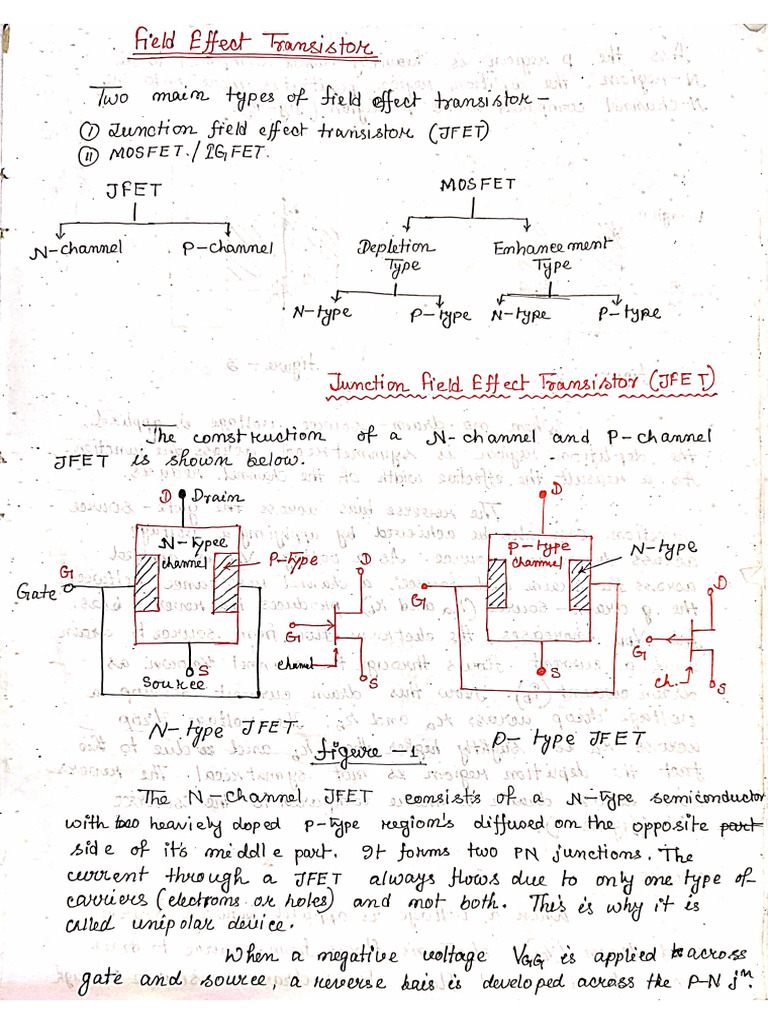 Field Effect Transistor
Two main types of field effect transistor-
(I) Junction field effect transistor (JFET)
(II) MOSFET./IGFET.
JFET
N-channel P-channel
MOSFET
Depletion Type
Enhancement Type
N-type P-type N-type P-type
Junction Field Effect Transistor (JFET)
The construction of a N-channel and P-channel
JFET is shown below.
D Drain
N-Typee
channel
P-Type
Gate G
S
Source
D
G
channel
S
N-type JFET
D
P-type
channel
N-type
G
S
D
G
ch.
S
P-type JFET
figure -1.
The N-channel JFET consists of a N-type semiconductor
with two heaviely doped P-type region's diffused on the opposite part
side of it's middle part. It forms two PN junctions. The
current through a JFET always flows due to only one type of
carriers (electrons or holes) and not both. This is why it is
called unipolar device.
When a negative voltage VGG is applied across
gate and source, a reverse bais is developed across the P-N jn.